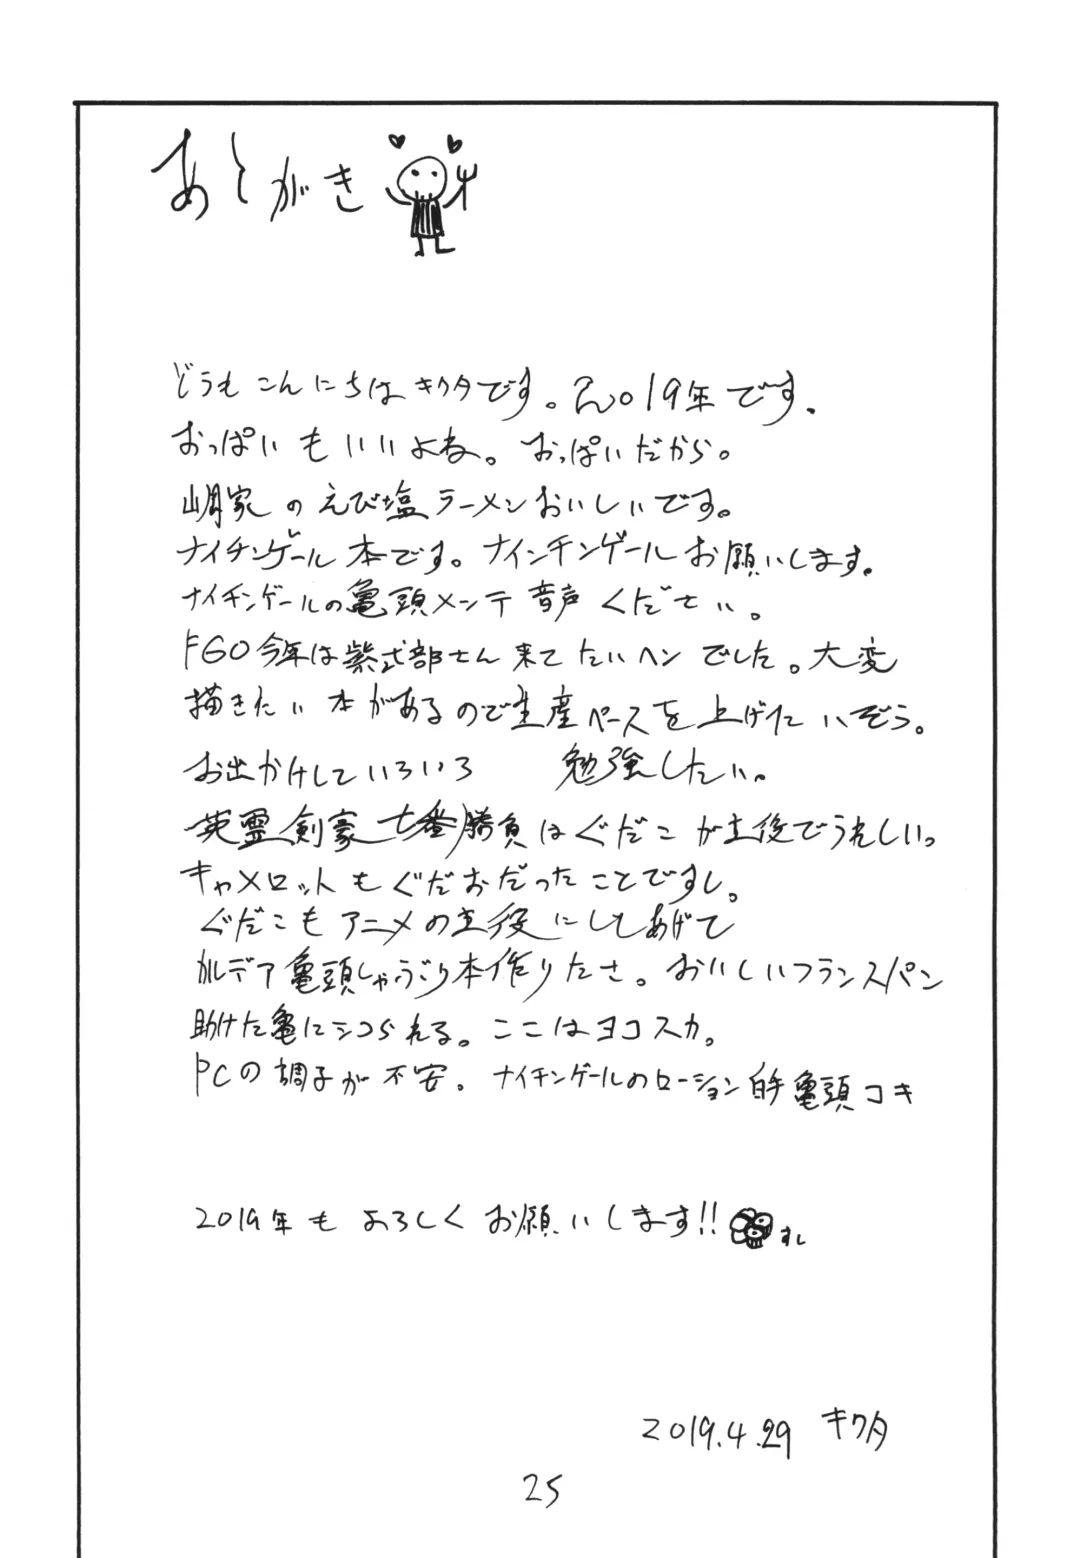 あとがき
どうもこんにちはキクタです。2019年です.
おっぱいもいいよね。おっぱいだから。
家のえび塩ラーメンおいしいです。
ナイチンゲール本です。ナインチンゲールお願いします。
ナイチンゲールの亀頭メンテ音声ください。
FGO今年は紫式部さん来てたいヘンでした。大変
描きたい本があるので生産ペースを上げたいぞう。
お出かけしていろいろ 勉強したい。
英霊剣豪七番勝負はぐだこが主役でうれしい。
キャメロットもぐだおだったことですし。
ぐだこもアニメの主役にしてあげて
カルデア亀頭しゃぶり本作りたさ。おいしいフランスパン
助けた亀にシコられる。ここはヨコスカ。
PCの調子が不安。ナイチンゲールのローション亀頭コキ
2019年もよろしくお願いします!!
2019.4.29 キクタ
25